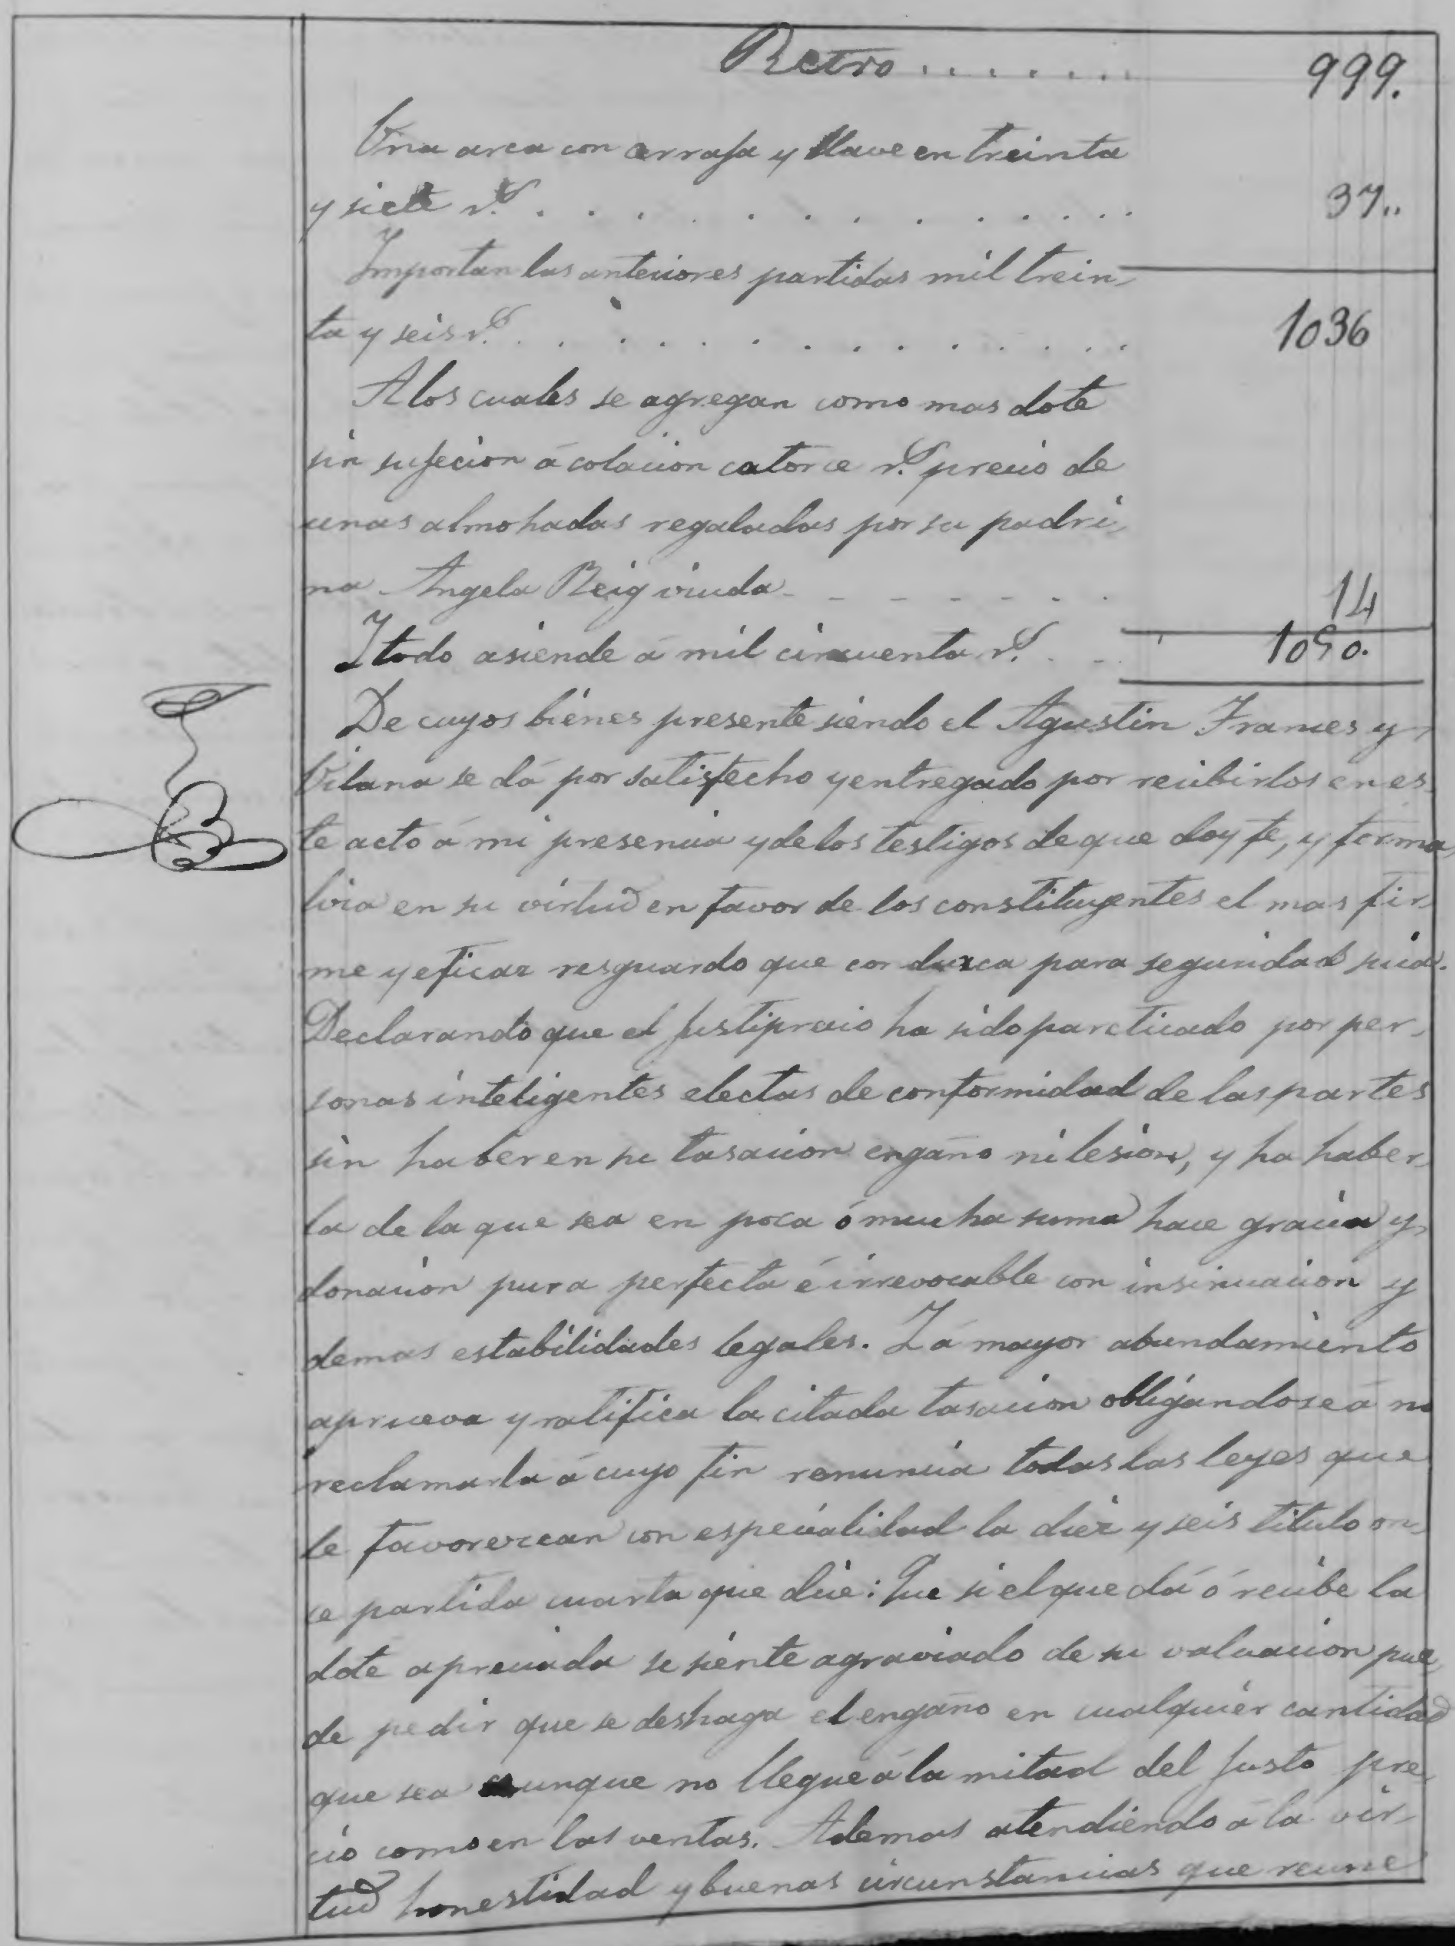 Retro . . . . . . . 999.
Una arca con cerraja y llave en treinta
y siete r.s . . . . . . . . . . . 37..
Importan las anteriores partidas mil trein-
ta y seis r.s . . . . . . . . . . . 1036
A los cuales se agregan como mas dote
sin sujecion á colacion catorce r.s precio de
unas almohadas regaladas por su padri-
na Angela Reig viuda - - - - - - . 14
I todo asiende á mil cincuenta r.s . . . 1050.
De cuyos bienes presente siendo el Agustin Frances y
Vilana se dá por satisfecho y entregado por recibirlos en es-
te acto á mi presencia y de los testigos de que doy fe, y forma
liza en su virtud en favor de los constituyentes el mas fir-
me y eficaz resguardo que conduzca para seguridad suia.
Declarando que el justiprecio ha sido parcticado por per-
sonas inteligentes electas de conformidad de las partes
sin haber en su tasacion engaño ni lesion, y ha haber-
la de la que sea en poca ó mucha suma hace gracia y
donacion pura perfecta é irrevocable con insinuacion y
demas estabilidades legales. I á mayor abundamiento
aprueva y ratifica la citada tasacion obligandose á no
reclamarla á cuyo fin renuncia todas las leyes que
le favorezcan con especialidad la diez y seis titulo on-
ce partida cuarta que dice: Que si el que dá ó recibe la
dote apreciada se siente agraviado de su valuacion pue
de pedir que se deshaga el engaño en cualquier cantidad
que sea aunque no llegue á la mitad del justo pre-
cio como en las ventas. Ademas atendiendo á la vir-
tud honestidad y buenas circunstancias que reune